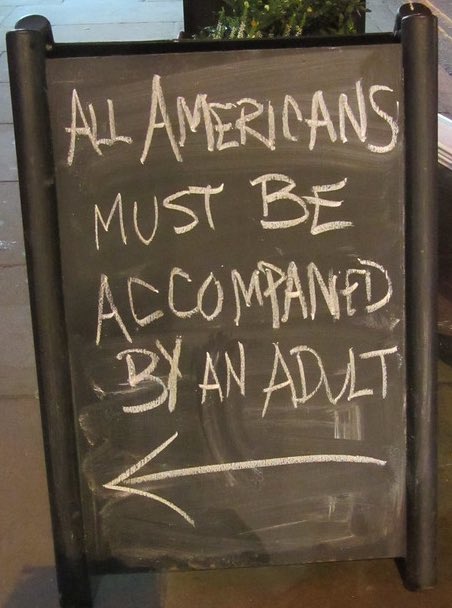 ALL AMERICANS
MUST BE
ACCOMPANED
BY AN ADULT